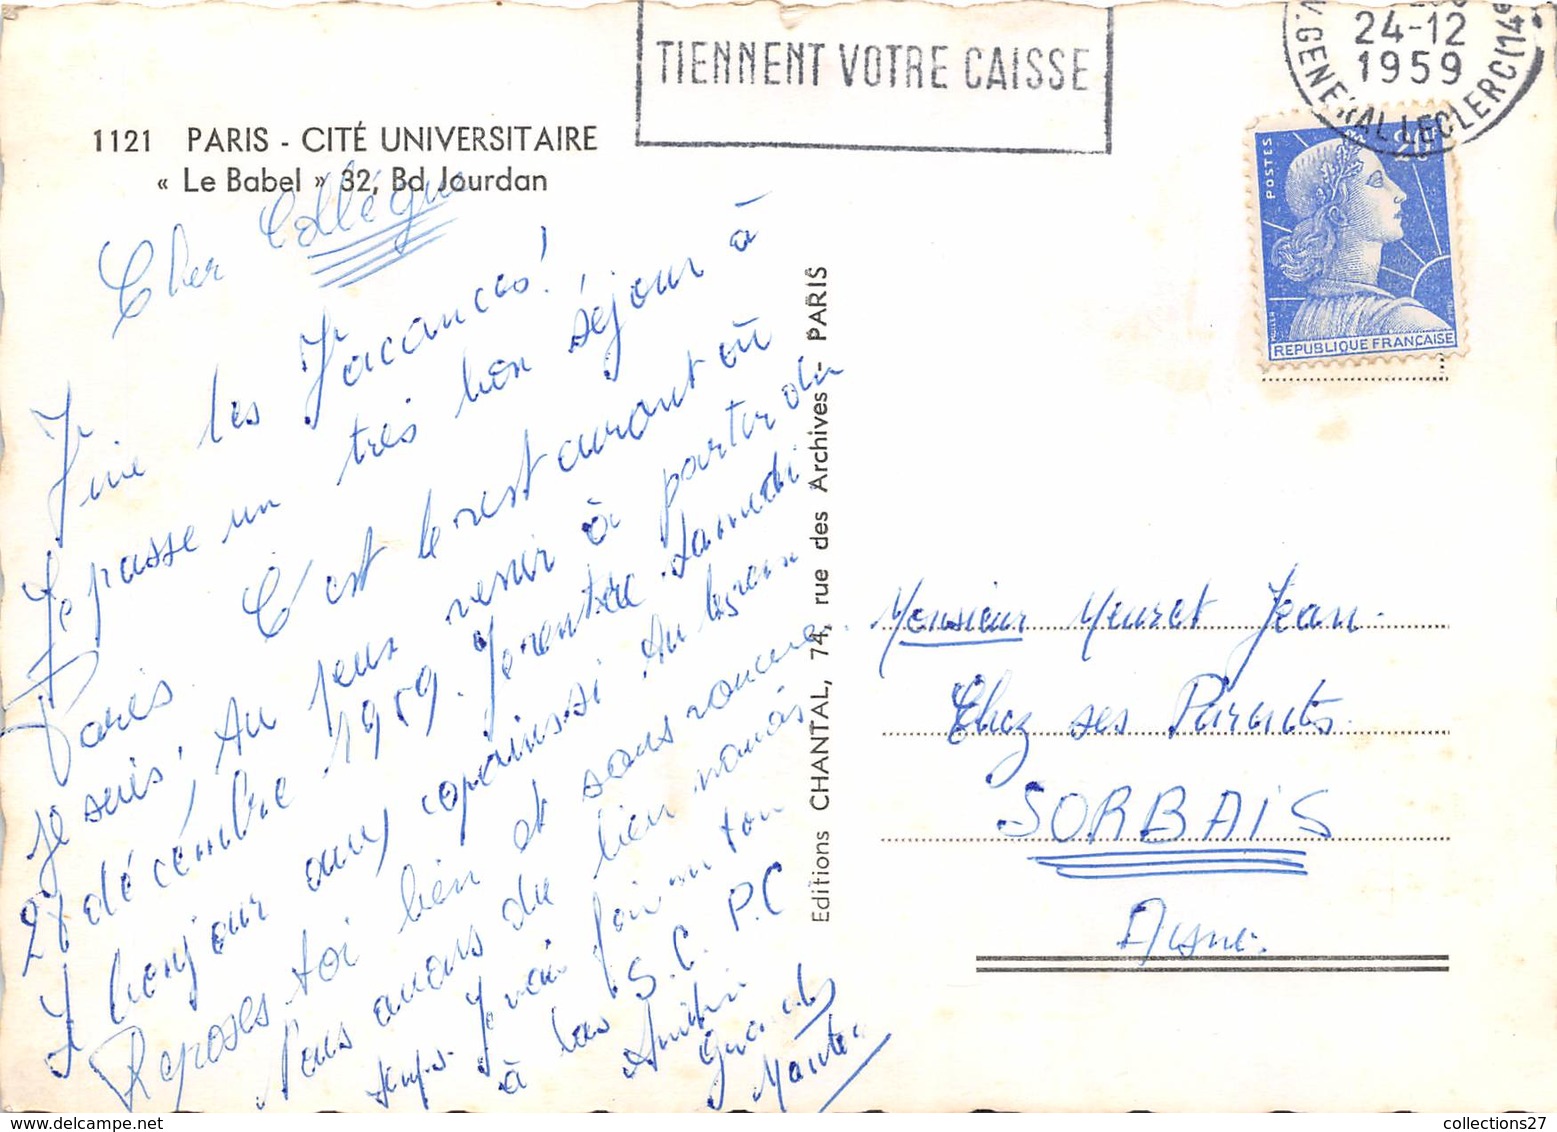 TIENNENT VOTRE CAISSE
24-12
1959
V. GENERAL LECLERC (14e)
1121 PARIS - CITÉ UNIVERSITAIRE
« Le Babel » 32, Bd Jourdan
POSTES
20F
REPUBLIQUE FRANÇAISE
Cher Collègue
Vive les Vacances!
Je passe un très bon séjour à
Paris. C'est le restaurant où
je suis, Au venir à partir du
27 décembre 1959. Je rentre samedi
bonjour aux copains si tu les
Reposes toi bien et sans
Nous avons du bien mauvais
temps. Je fini ton
à S.C. P.C
Amitié
Editions CHANTAL, 74, rue des Archives - PARIS
Monsieur Meuret Jean.
Chez ses Parents.
SORBAIS
Aisne.
collections27